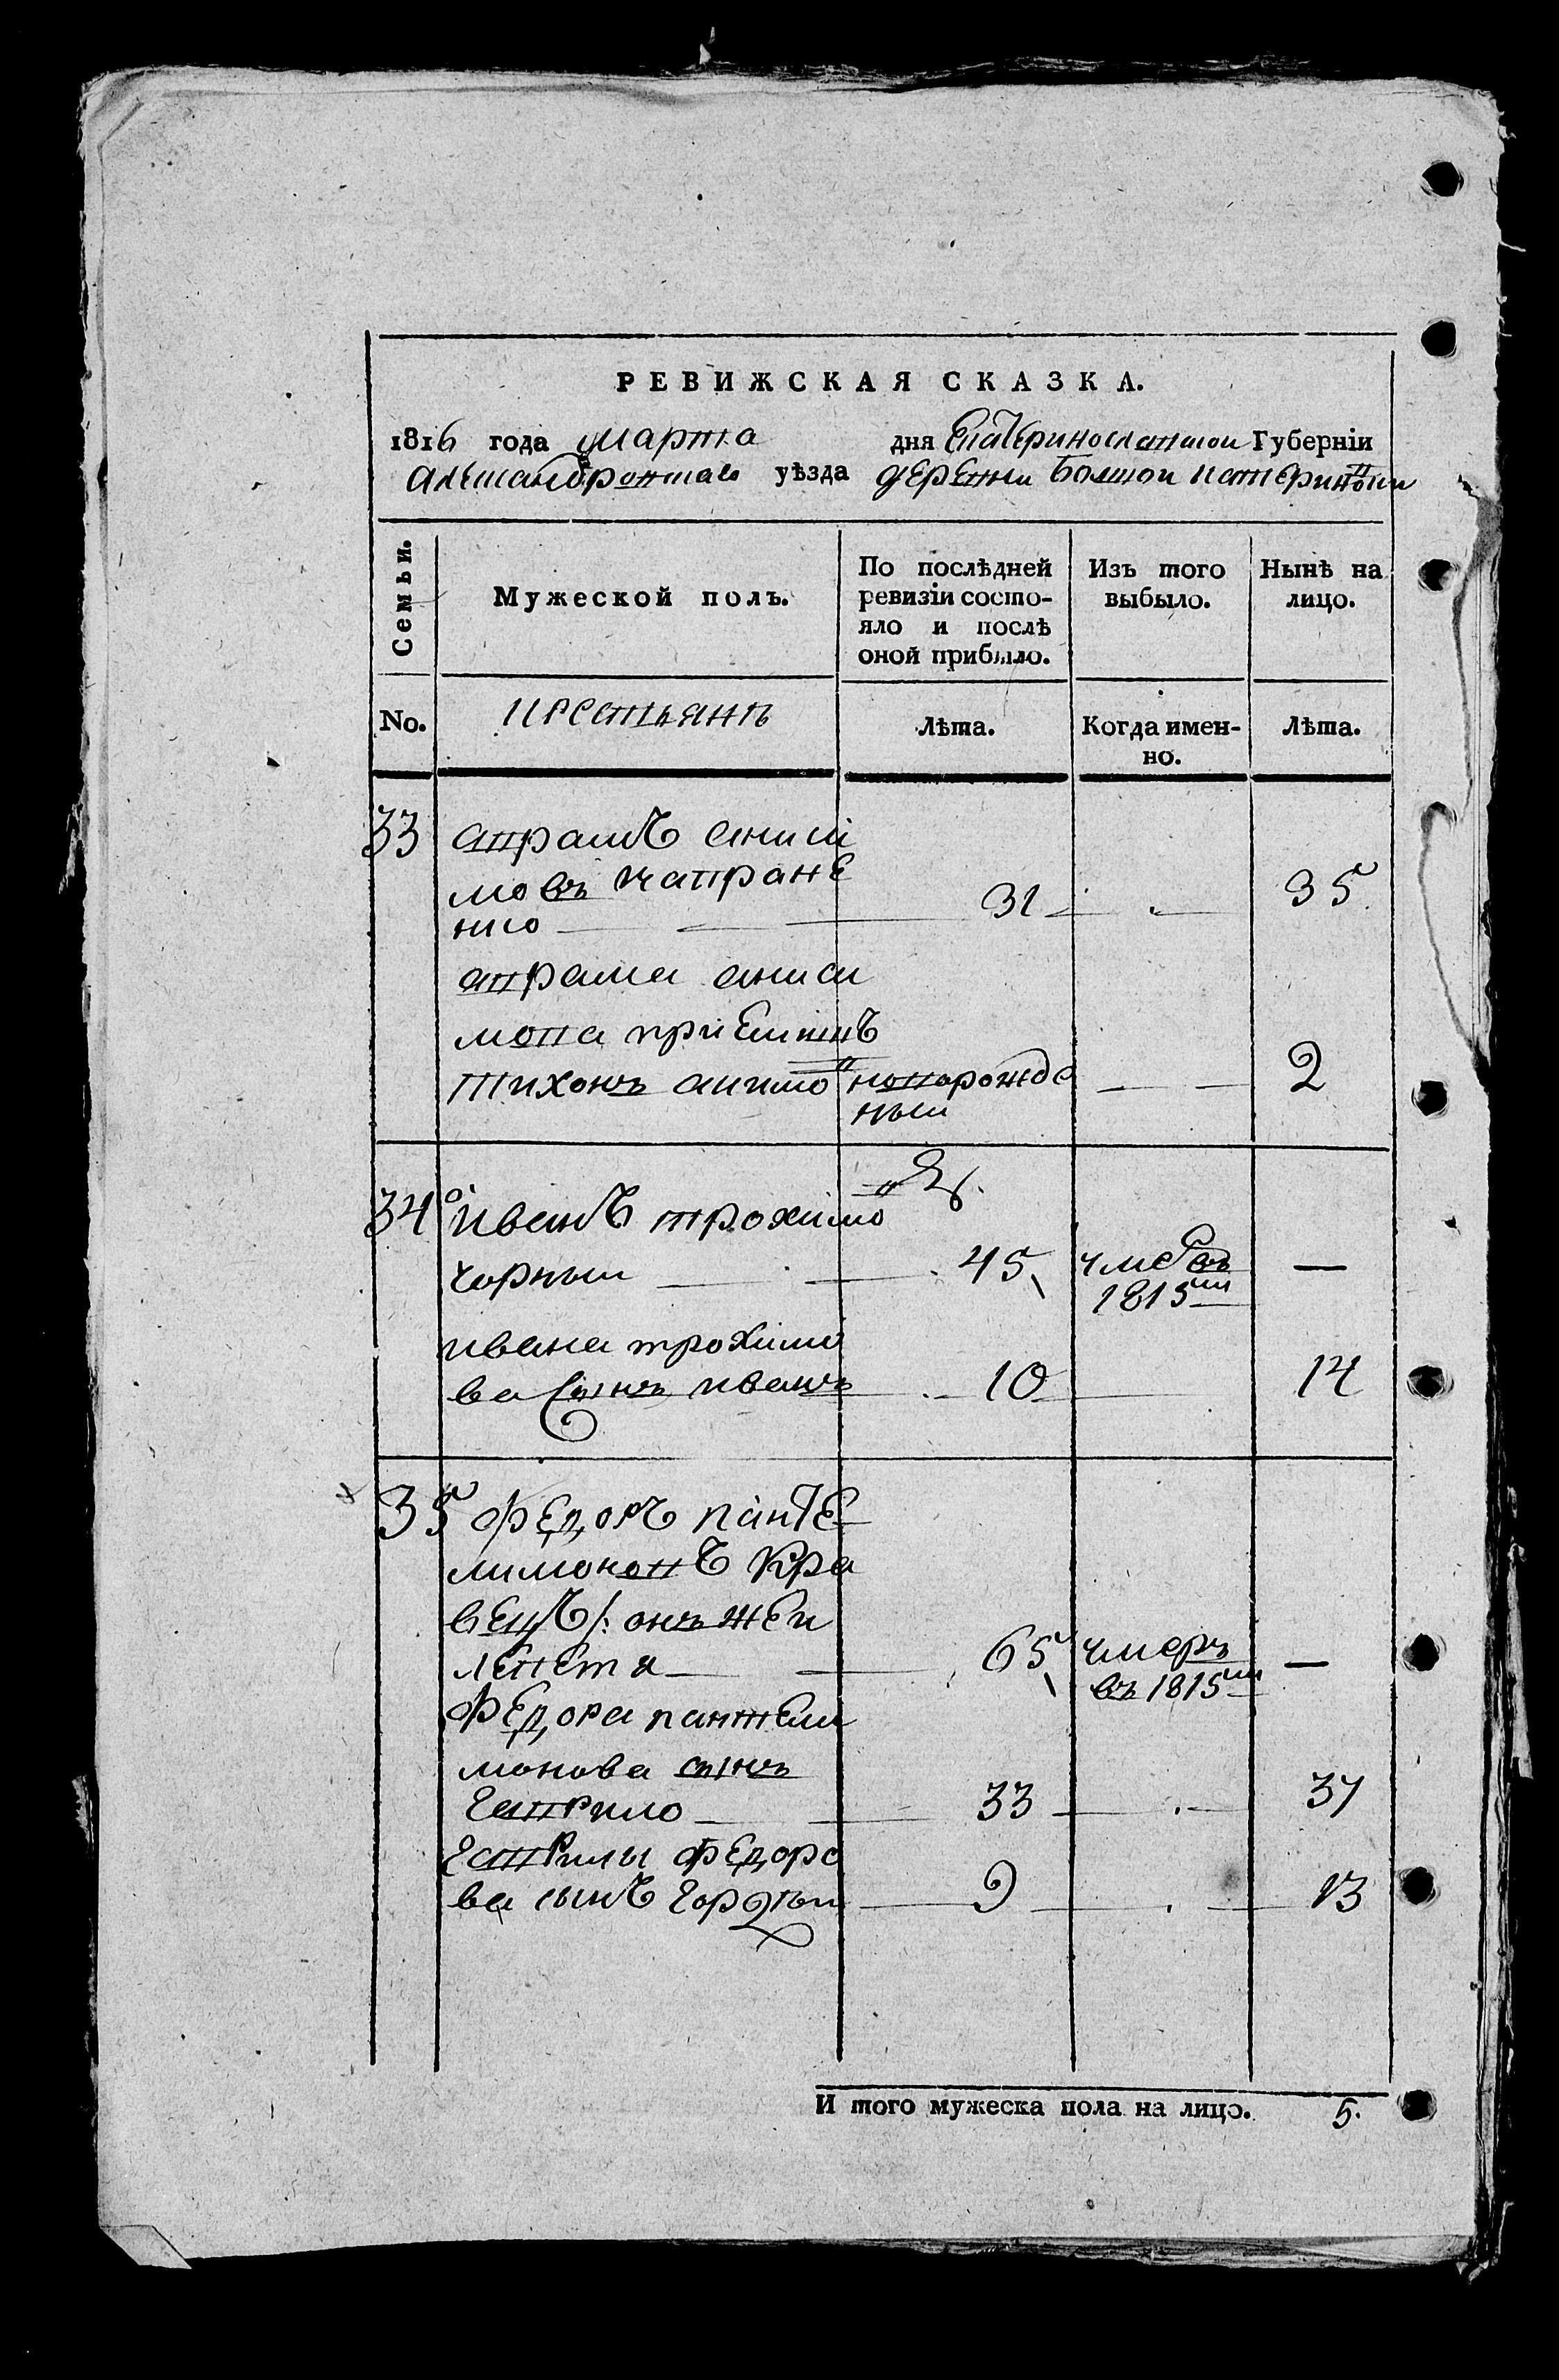 РЕВИЖСКАЯ СКАЗКА.
1816 года марта дня Екатеринославской Губерніи
Александровскаго уѣзда деревни Болшой катериновки
Семьи. Мужеской полъ. По послѣдней ревизіи состояло и послѣ оной прибыло. Изъ того выбыло. Нынѣ на лицо.
No. крестьянъ Лѣта. Когда именно. Лѣта.
33 аврамъ аниси
мовъ
31 35
аврама аниси
мова приемышъ
тихонъ новорожде 2
ный
34 иванъ трохимо
чорный 45 умре въ —
1815м
ивана трохимо
ва сынъ иванъ 10 14
35 федоръ панте
лимоновъ кра
вецъ /: онъ же и
65 умеръ —
въ 1815м
федора пантели
монова сынъ
гаврило 33 37
гаврилы федоро
ва сынъ гордѣй 9 13
И того мужеска пола на лицо. 5.